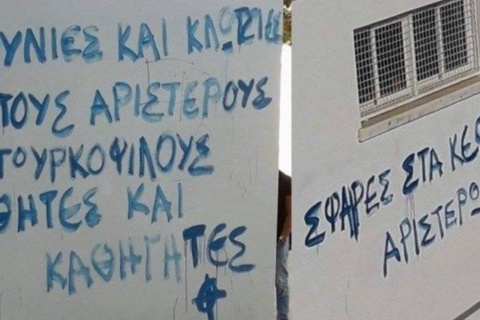 ΥΝΙΕΣ ΚΑΙ
ΤΟΥΣ ΑΡΙΣΤΕΡΟΥΣ
ΤΟΥΡΚΟΦΙΛΟΥΣ
ΘΗΤΕΣ ΚΑΙ
ΚΑΘΗΓΗΤΕΣ
ΣΦΑΡΕΣ ΣΤΑ ΚΕΦ
ΑΡΙΣΤΕΡΩ